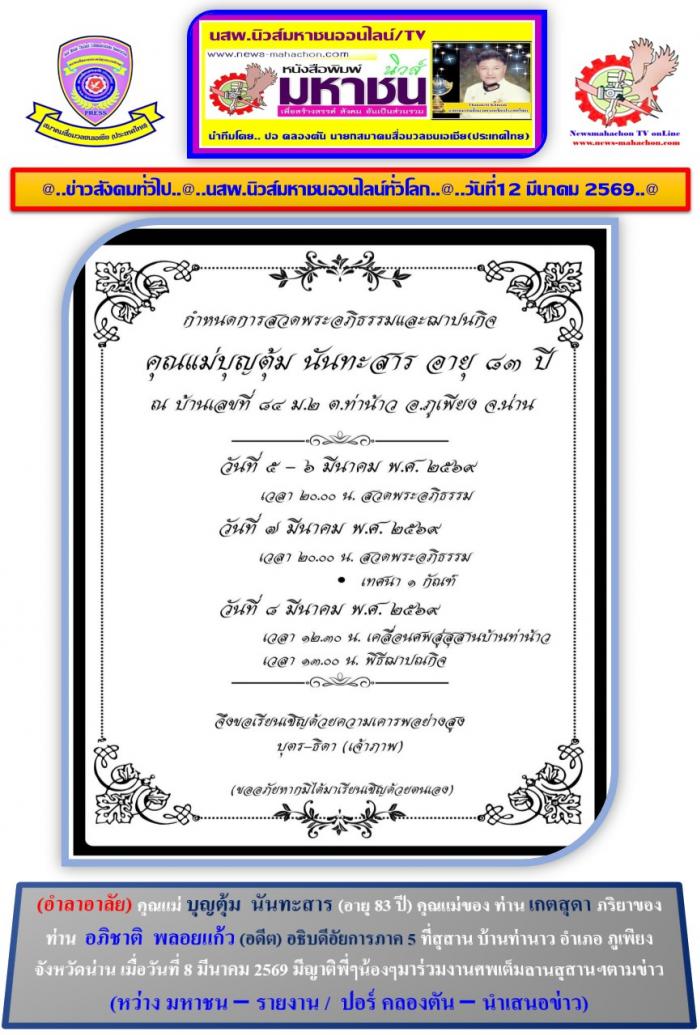 นสพ.นิวส์มหาชนออนไลน์/TV
www.news-mahachon.com
หนังสือพิมพ์
มหาชน
นิวส์
เพื่อสร้างสรรค์ สังคม อันเป็นส่วนรวม
นำทีมโดย.. ปอ คลองตัน นายกสมาคมสื่อมวลชนเอเชีย(ประเทศไทย)
PRESS
สมาคมสื่อมวลชนเอเชีย (ประเทศไทย)
Newsmahachon TV onLine
www.news-mahachon.com
@..ข่าวสังคมทั่วไป..@..นสพ.นิวส์มหาชนออนไลน์ทั่วโลก..@..วันที่12 มีนาคม 2569..@
กำหนดการสวดพระอภิธรรมและฌาปนกิจ
คุณแม่บุญตุ้ม นันทะสาร อายุ ๘๓ ปี
ณ บ้านเลขที่ ๘๔ ม.๒ ต.ท่าน้าว อ.ภูเพียง จ.น่าน
วันที่ ๕ – ๖ มีนาคม พ.ศ. ๒๕๖๙
เวลา ๒๐.๐๐ น. สวดพระอภิธรรม
วันที่ ๗ มีนาคม พ.ศ. ๒๕๖๙
เวลา ๒๐.๐๐ น. สวดพระอภิธรรม
• เทศนา ๑ กัณฑ์
วันที่ ๘ มีนาคม พ.ศ. ๒๕๖๙
เวลา ๑๒.๓๐ น. เคลื่อนศพสู่สุสานบ้านท่าน้าว
เวลา ๑๓.๐๐ น. พิธีฌาปณกิจ
จึงขอเรียนเชิญด้วยความเคารพอย่างสูง
บุตร-ธิดา (เจ้าภาพ)
(ขออภัยหากมิได้มาเรียนเชิญด้วยตนเอง)
(อำลาอาลัย) คุณแม่ บุญตุ้ม นันทะสาร (อายุ 83 ปี) คุณแม่ของ ท่าน เกตสุดา ภริยาของ
ท่าน อภิชาติ พลอยแก้ว (อดีต) อธิบดีอัยการภาค 5 ที่สุสาน บ้านท่านาว อำเภอ ภูเพียง
จังหวัดน่าน เมื่อวันที่ 8 มีนาคม 2569 มีญาติพี่ๆน้องๆมาร่วมงานศพเต็มลานสุสานฯตามข่าว
(หว่าง มหาชน – รายงาน / ปอร์ คลองตัน – นำเสนอข่าว)